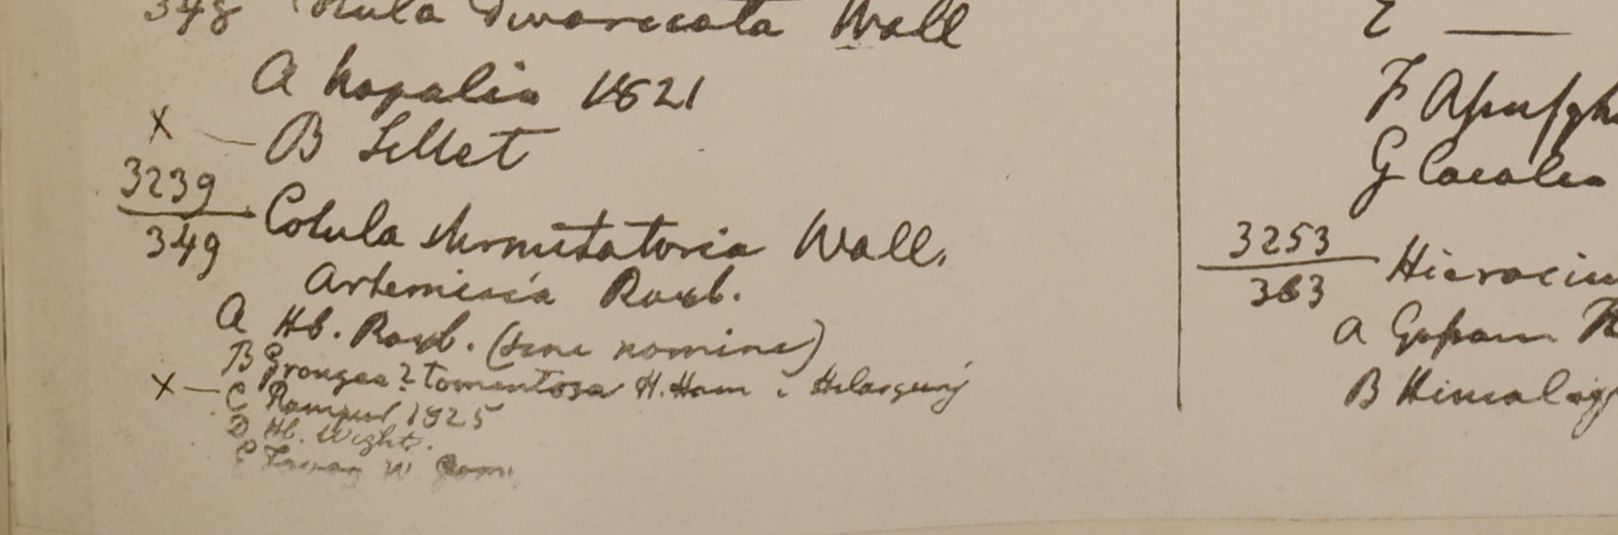 348 Cotula divaricata Wall
A Napalia 1821
X — B Sillet
3239
349 Cotula sternutatoria Wall.
Artemisia Roxb.
A Hb. Roxb. (sine nomine)
B Grangea? tomentosa H. Ham e
X — C Rampur 1825
D Hb. Wight.
E Tavoy W. Gom.
E —
F
G Cacalia
3253
383 Hieraciu
a Gossam
B Himalay